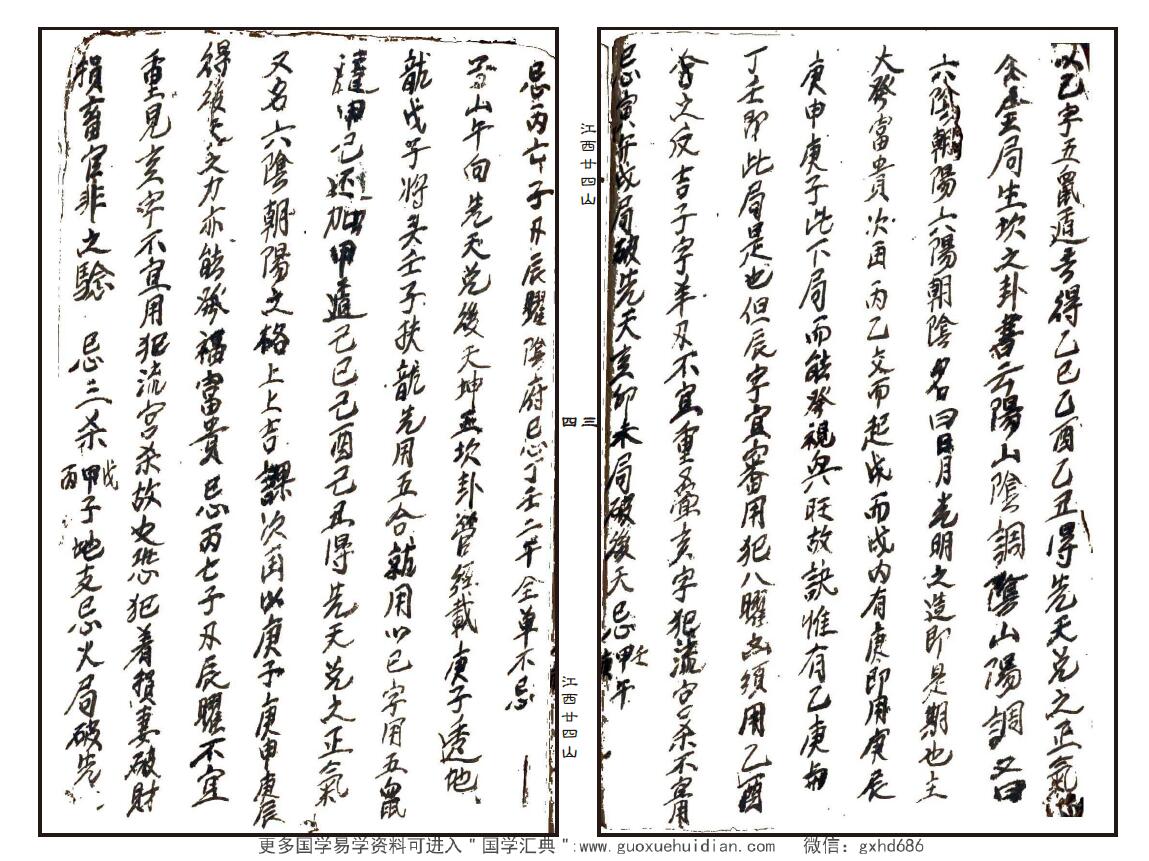 以己字五鼠遁音得乙巳乙酉乙丑得先天兑之正氣
金局生坎之卦書云陽山陰調陰山陽調又曰
六陰朝陽六陽朝陰名曰日月光明之造即是期也主
大發富貴次酉丙乙交而起戊而戊內有庚即用庚辰
庚申庚子此下局而能發視與旺故訣惟有乙庚
丁壬即此局是也但辰字宜審用犯八曜必須用乙酉
合之反吉子字羊刃不宜重亥字犯流字杀不宜用
忌寅午戌局破先天亥卯未局破後天忌甲壬庚午
三
四
江西廿四山
江西廿四山
忌丙亡子刃辰曜陰府忌丁壬二干全單不忌
子山午向先天兑後天坤坎卦營經載庚子透地
龍戊子將美壬子扶龍先用五合就用以己字用五鼠
遁甲己还加甲遁己巳己酉己丑得先天兑之正氣
又名六陰朝陽之格上上吉課次用以庚子庚申庚辰
得後天之力亦能發福富貴忌丙七子刃辰曜不宜
重見亥字不宜用犯流宫杀故也恐犯着損妻破財
損畜官非之驗 忌三杀丙甲戊子地支忌火局破先
更多国学易学资料可进入＂国学汇典＂:www.guoxuehuidian.com 微信：gxhd686